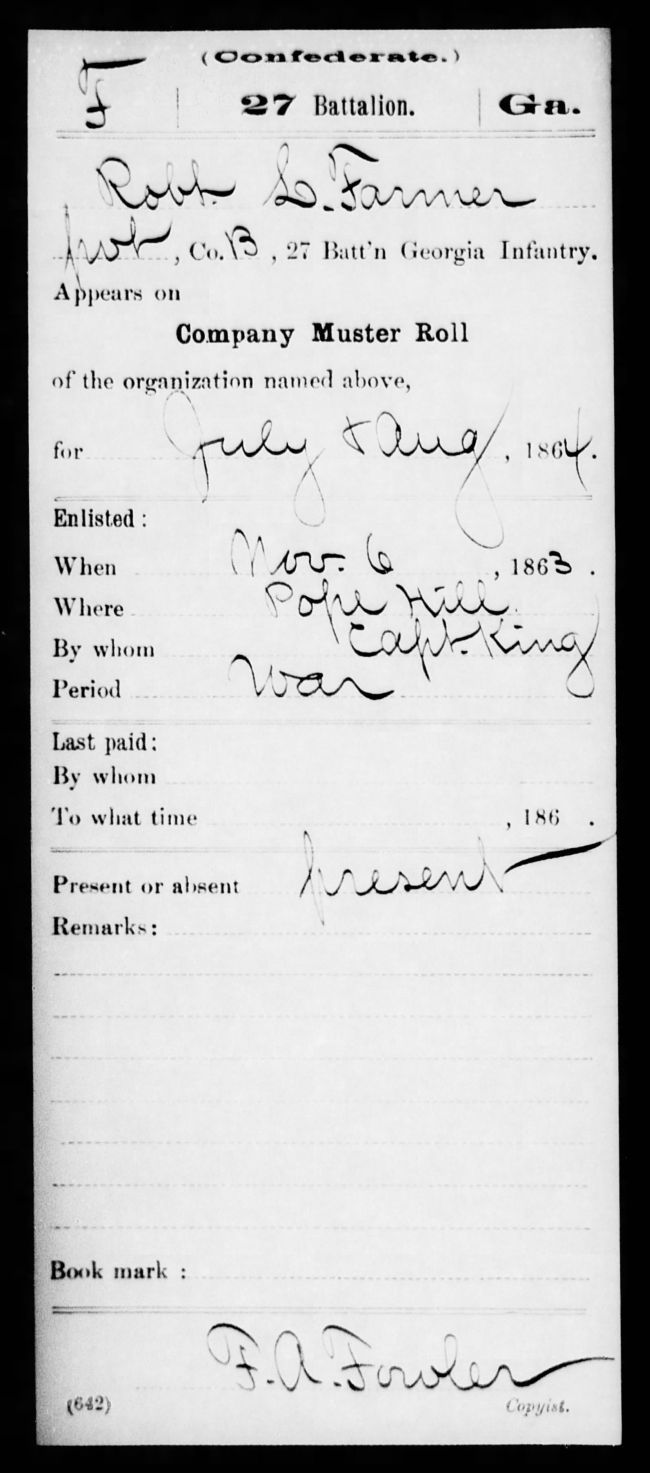 (Confederate.)
F | 27 Battalion. | Ga.
Robt. L. Farmer
Pvt, Co. B, 27 Batt'n Georgia Infantry.
Appears on
Company Muster Roll
of the organization named above,
for July & Aug, 1864.
Enlisted:
When Nov. 6, 1863.
Where Pope Hill.
By whom Capt. King
Period War
Last paid:
By whom
To what time , 186 .
Present or absent present
Remarks:
Book mark :
F. A. Fowler
(642) Copyist.